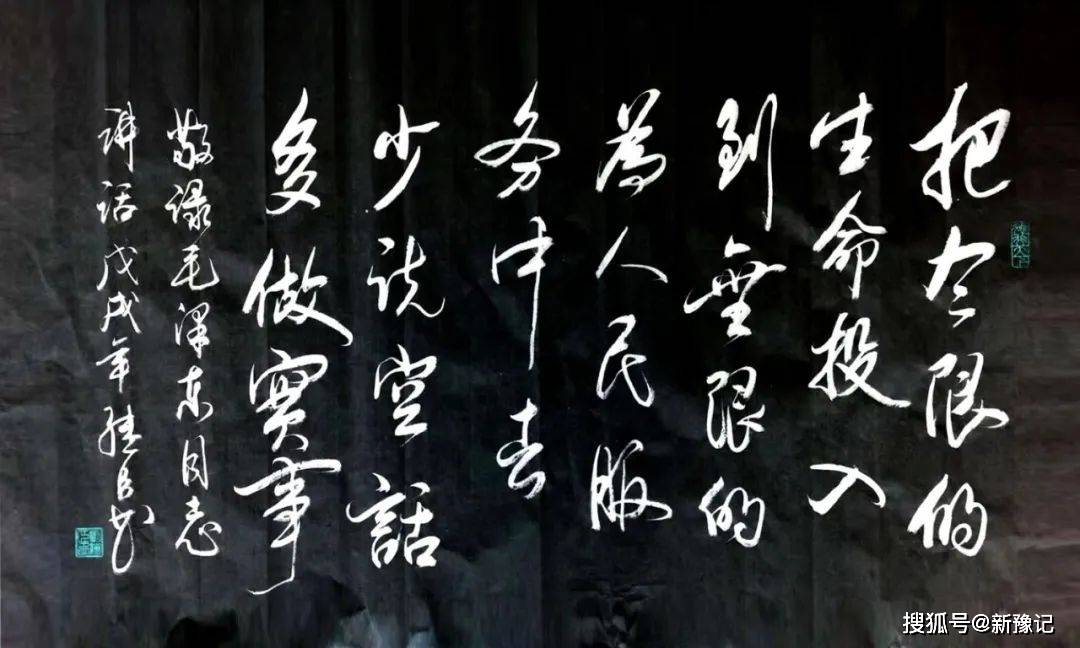 把有限的
生命投入
到無限的
為人民服
务中去
少说空話
多做實事
敬録毛泽东同志
讲话戊戌年书
搜狐号@新豫记